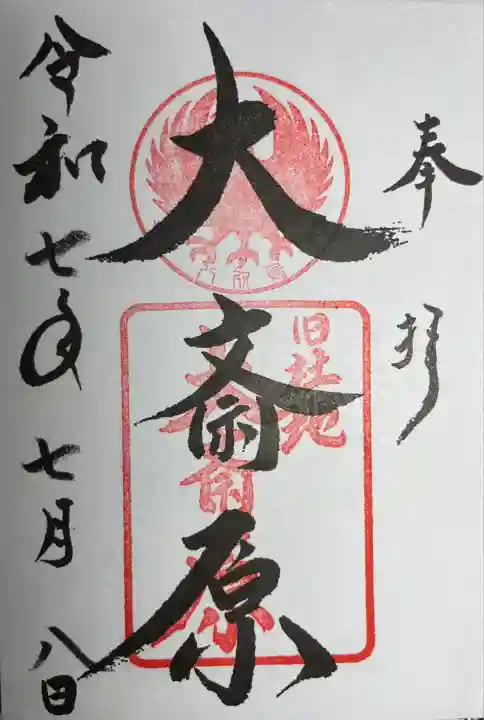 奉拝
大斎原
旧社地
大斎原
令和七年七月八日